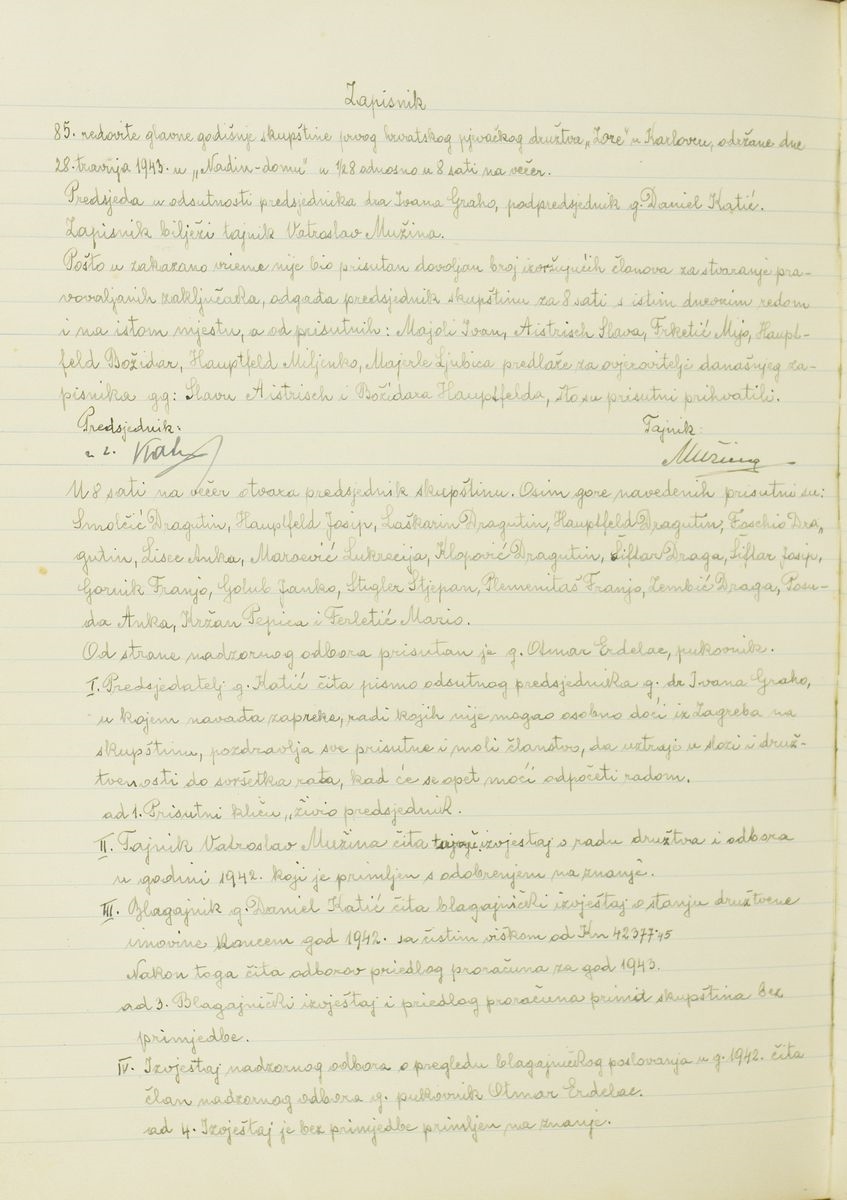 Zapisnik
85. redovite glavne godišnje skupštine prvog hrvatskog pjevačkog društva „Zore" u Karlovcu, održane dne
28. travnja 1943. u „Nadin-domu" u ½8 odnosno u 8 sati na večer.
Predsjeda u odsutnosti predsjednika dra Ivana Graho, podpredsjednik g. Daniel Katić.
Zapisnik bilježi tajnik Vatroslav Mužina.
Pošto u zakazano vrieme nije bio prisutan dovoljan broj izvršujućih članova za stvaranje pra-
vovaljanih zaključaka, odgađa predsjednik skupštinu za 8 sati s istim dnevnim redom
i na istom mjestu, a od prisutnih: Majoli Ivan, Aistrisch Slava, Frketić Mijo, Haupt-
feld Božidar, Hauptfeld Miljenko, Majerle Ljubica predlaže za ovjerovitelji današnjeg za-
pisnika gg: Slavu Aistrisch i Božidara Hauptfelda, što su prisutni prihvatili.
Predsjednik: Tajnik:
Mužina
U 8 sati na večer otvara predsjednik skupštinu. Osim gore navedenih prisutni su:
Smolčić Dragutin, Hauptfeld Josip, Laškarin Dragutin, Hauptfeld Dragutin, Foschio Dra„
gutin, Lisec Anka, Maroević Lukrecija, Klopović Dragutin, Šiftar Draga, Šiftar Josip,
Gornik Franjo, Golub Janko, Stigler Stjepan, Plemenitaš Franjo, Zembić Draga, Posu-
da Anka, Kržan Pepica i Ferletić Mario.
Od strane nadzornog odbora prisutan je g. Otmar Erdelac, pukovnik.
I. Predsjedatelj g. Katić čita pismo odsutnog predsjednika g. dr Ivana Graho,
u kojem navađa zapreke, radi kojih nije mogao osobno doći iz Zagreba na
skupštinu, pozdravlja sve prisutne i moli članstvo, da uztraje u slozi i druž-
tvenosti do svršetka rata, kad će se opet moći odpočeti radom.
ad 1. Prisutni kliču „živio predsjednik.
II. Tajnik Vatroslav Mužina čita izvještaj o radu družtva i odbora
u godini 1942. koji je primljen s odobrenjem na znanje.
III. Blagajnik g. Daniel Katić čita blagajnički izvještaj o stanju družtvene
imovine koncem god 1942. sa čistim viškom od Kn 42377·45
Nakon toga čita odborov priedlog proračuna za god 1943.
ad 3. Blagajnički izvještaj i priedlog proračuna primit skupština bez
primjedbe.
IV. Izvještaj nadzornog odbora o pregledu blagajničkog poslovanja u g. 1942. čita
član nadzornog odbora g. pukovnik Otmar Erdelac.
ad 4. Izvještaj je bez primjedbe primljen na znanje.